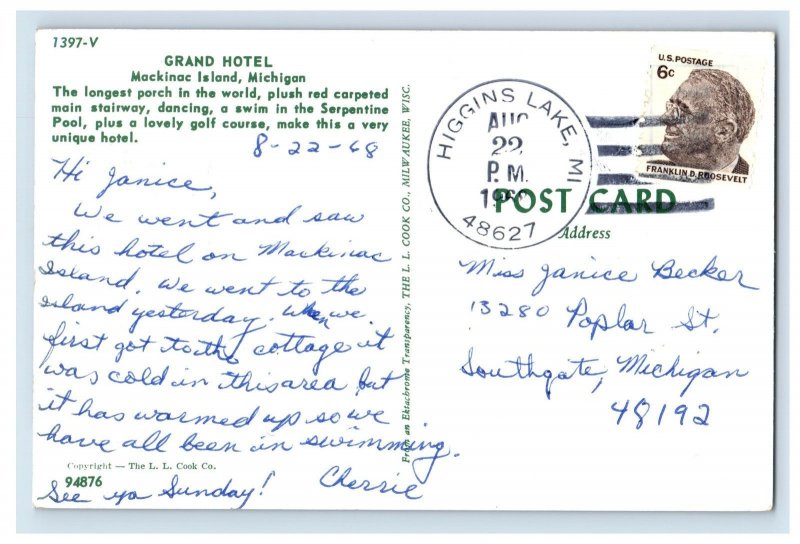 1397-V
GRAND HOTEL
Mackinac Island, Michigan
The longest porch in the world, plush red carpeted
main stairway, dancing, a swim in the Serpentine
Pool, plus a lovely golf course, make this a very
unique hotel.
8-22-68
Hi Janice,
We went and saw
this hotel on Mackinac
Island. We went to the
island yesterday. When we
first got to the cottage it
was cold in this area but
it has warmed up so we
have all been in swimming.
Copyright — The L. L. Cook Co.
94876
See ya Sunday! Cherrie
From an Ektachrome Transparency, THE L. L. COOK CO., MILWAUKEE, WISC.
HIGGINS LAKE, MI
AUG
22
P.M.
48627
U.S. POSTAGE
6c
FRANKLIN D. ROOSEVELT
POST CARD
Address
Miss Janice Becker
13280 Poplar St.
Southgate, Michigan
48192